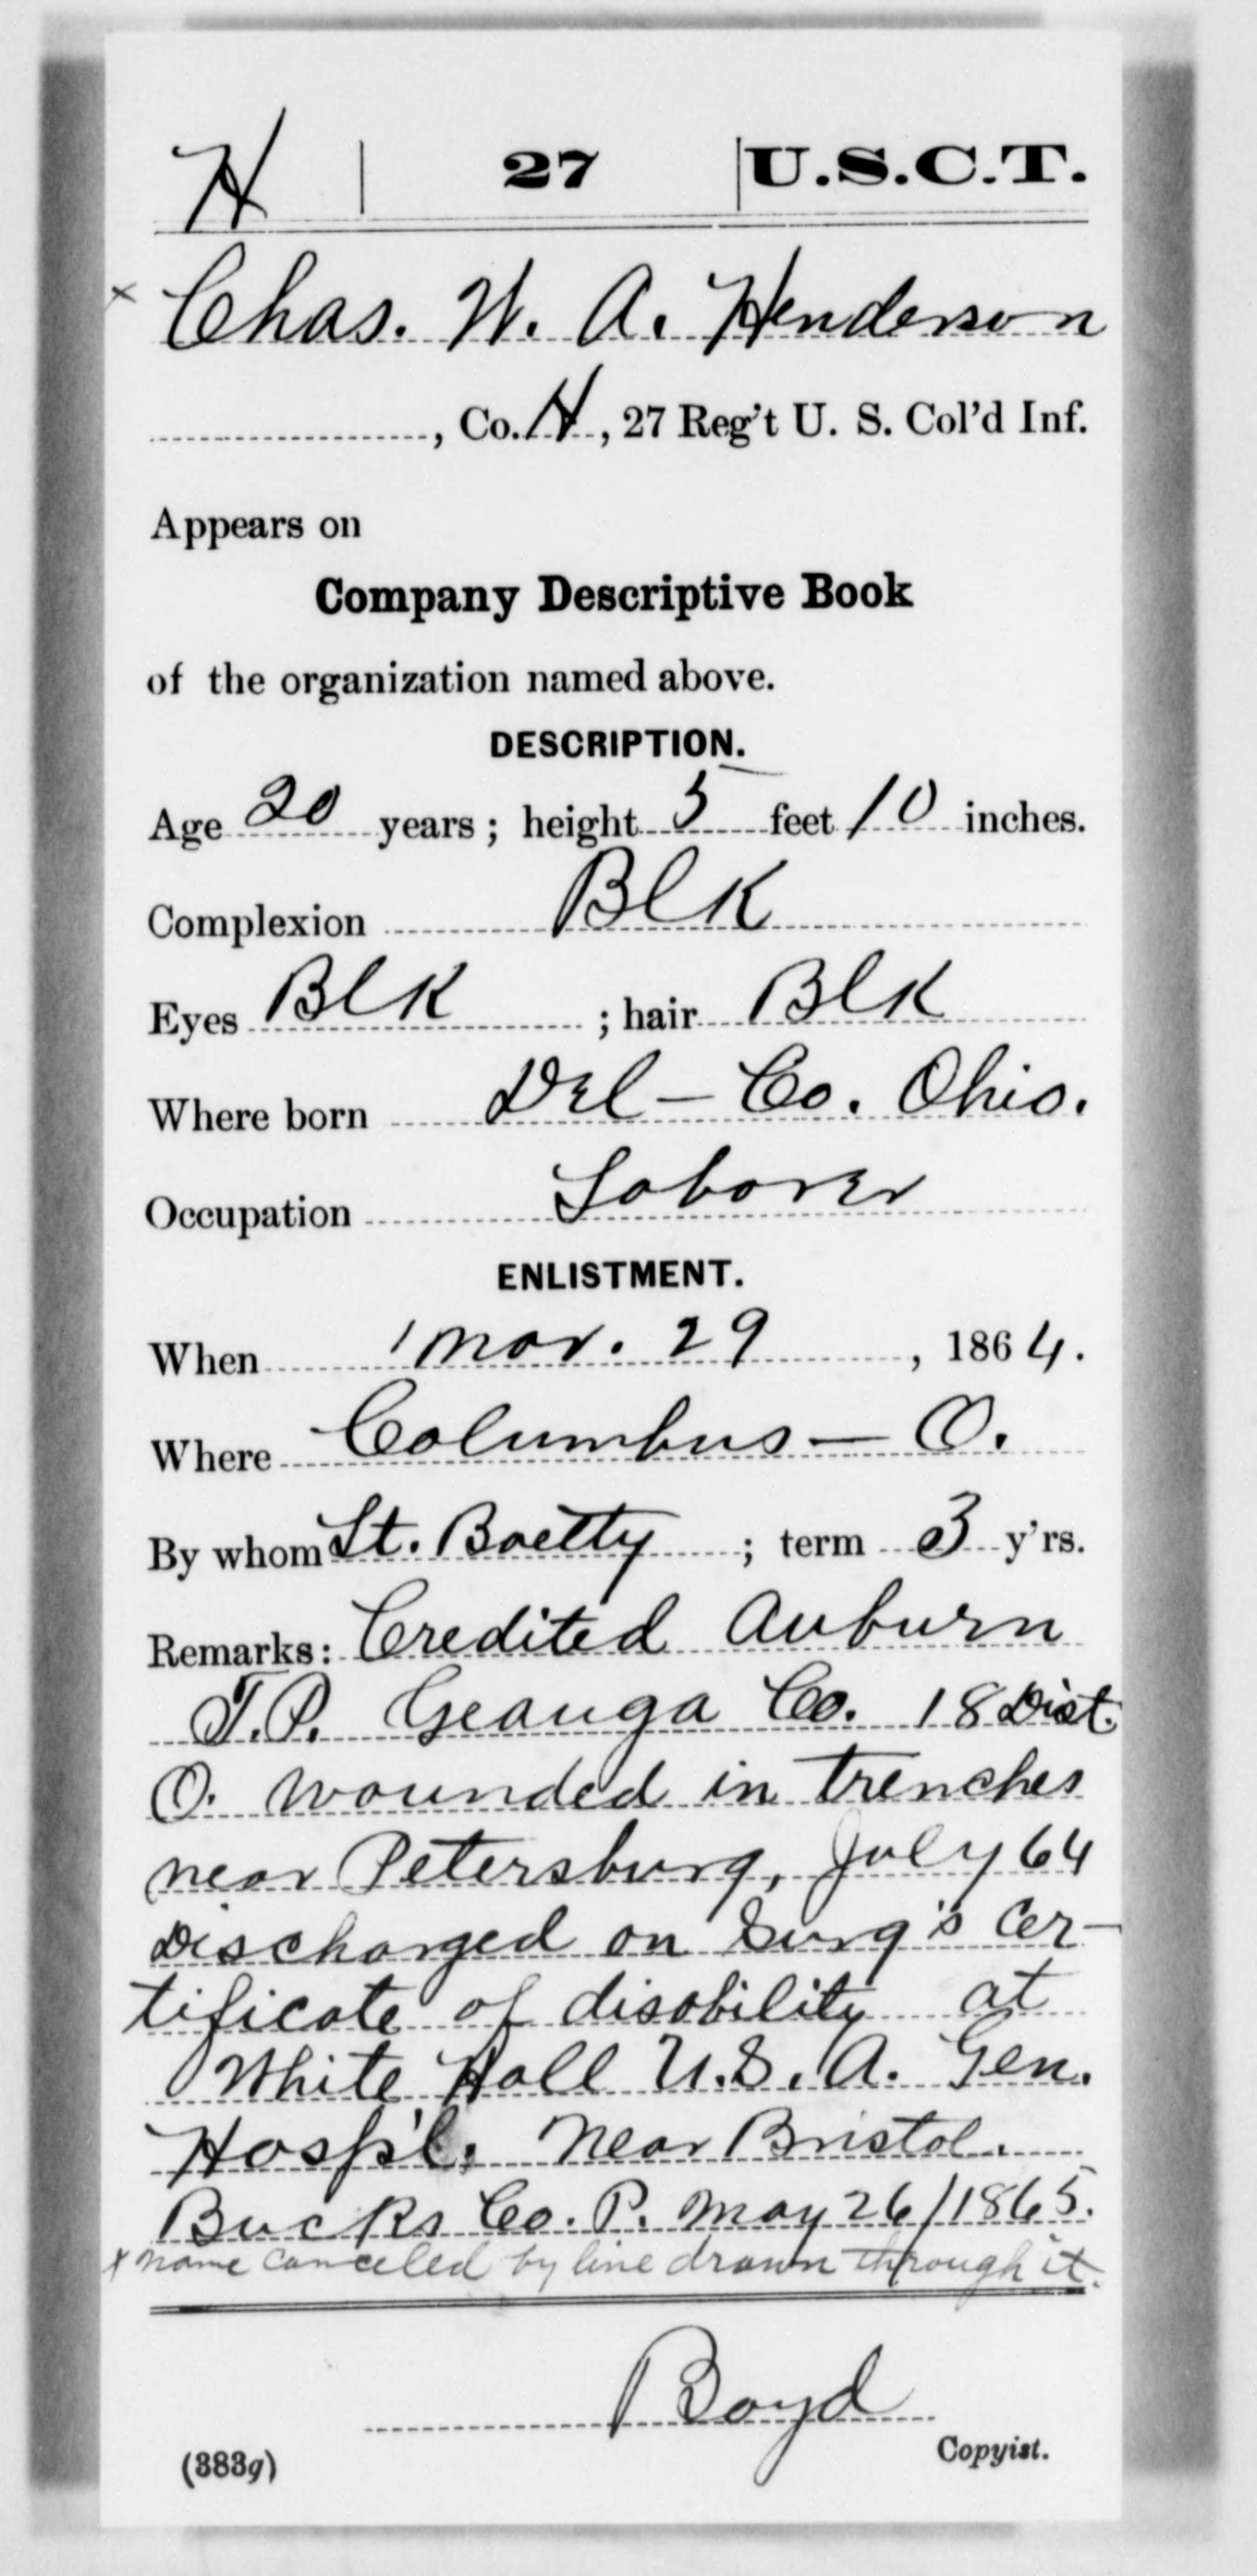 H | 27 | U.S.C.T.
x Chas. W. A. Henderson
, Co. H, 27 Reg't U. S. Col'd Inf.
Appears on
Company Descriptive Book
of the organization named above.
DESCRIPTION.
Age 20 years; height 5 feet 10 inches.
Complexion Blk
Eyes Blk ; hair Blk
Where born Del - Co. Ohio.
Occupation Laborer
ENLISTMENT.
When Mar. 29, 1864.
Where Columbus - O.
By whom Lt. ; term 3 y'rs.
Remarks: Credited Auburn
T.P. Geauga Co. 18 Dist.
O. wounded in trenches
near Petersburg, July 64
Discharged on Surg's Cer-
tificate of disability at
White Hall U.S.A. Gen.
Hosp'l. Near Bristol.
Bucks Co. P. May 26/1865.
x name canceled by line drawn through it.
Boyd
Copyist.
(383g)